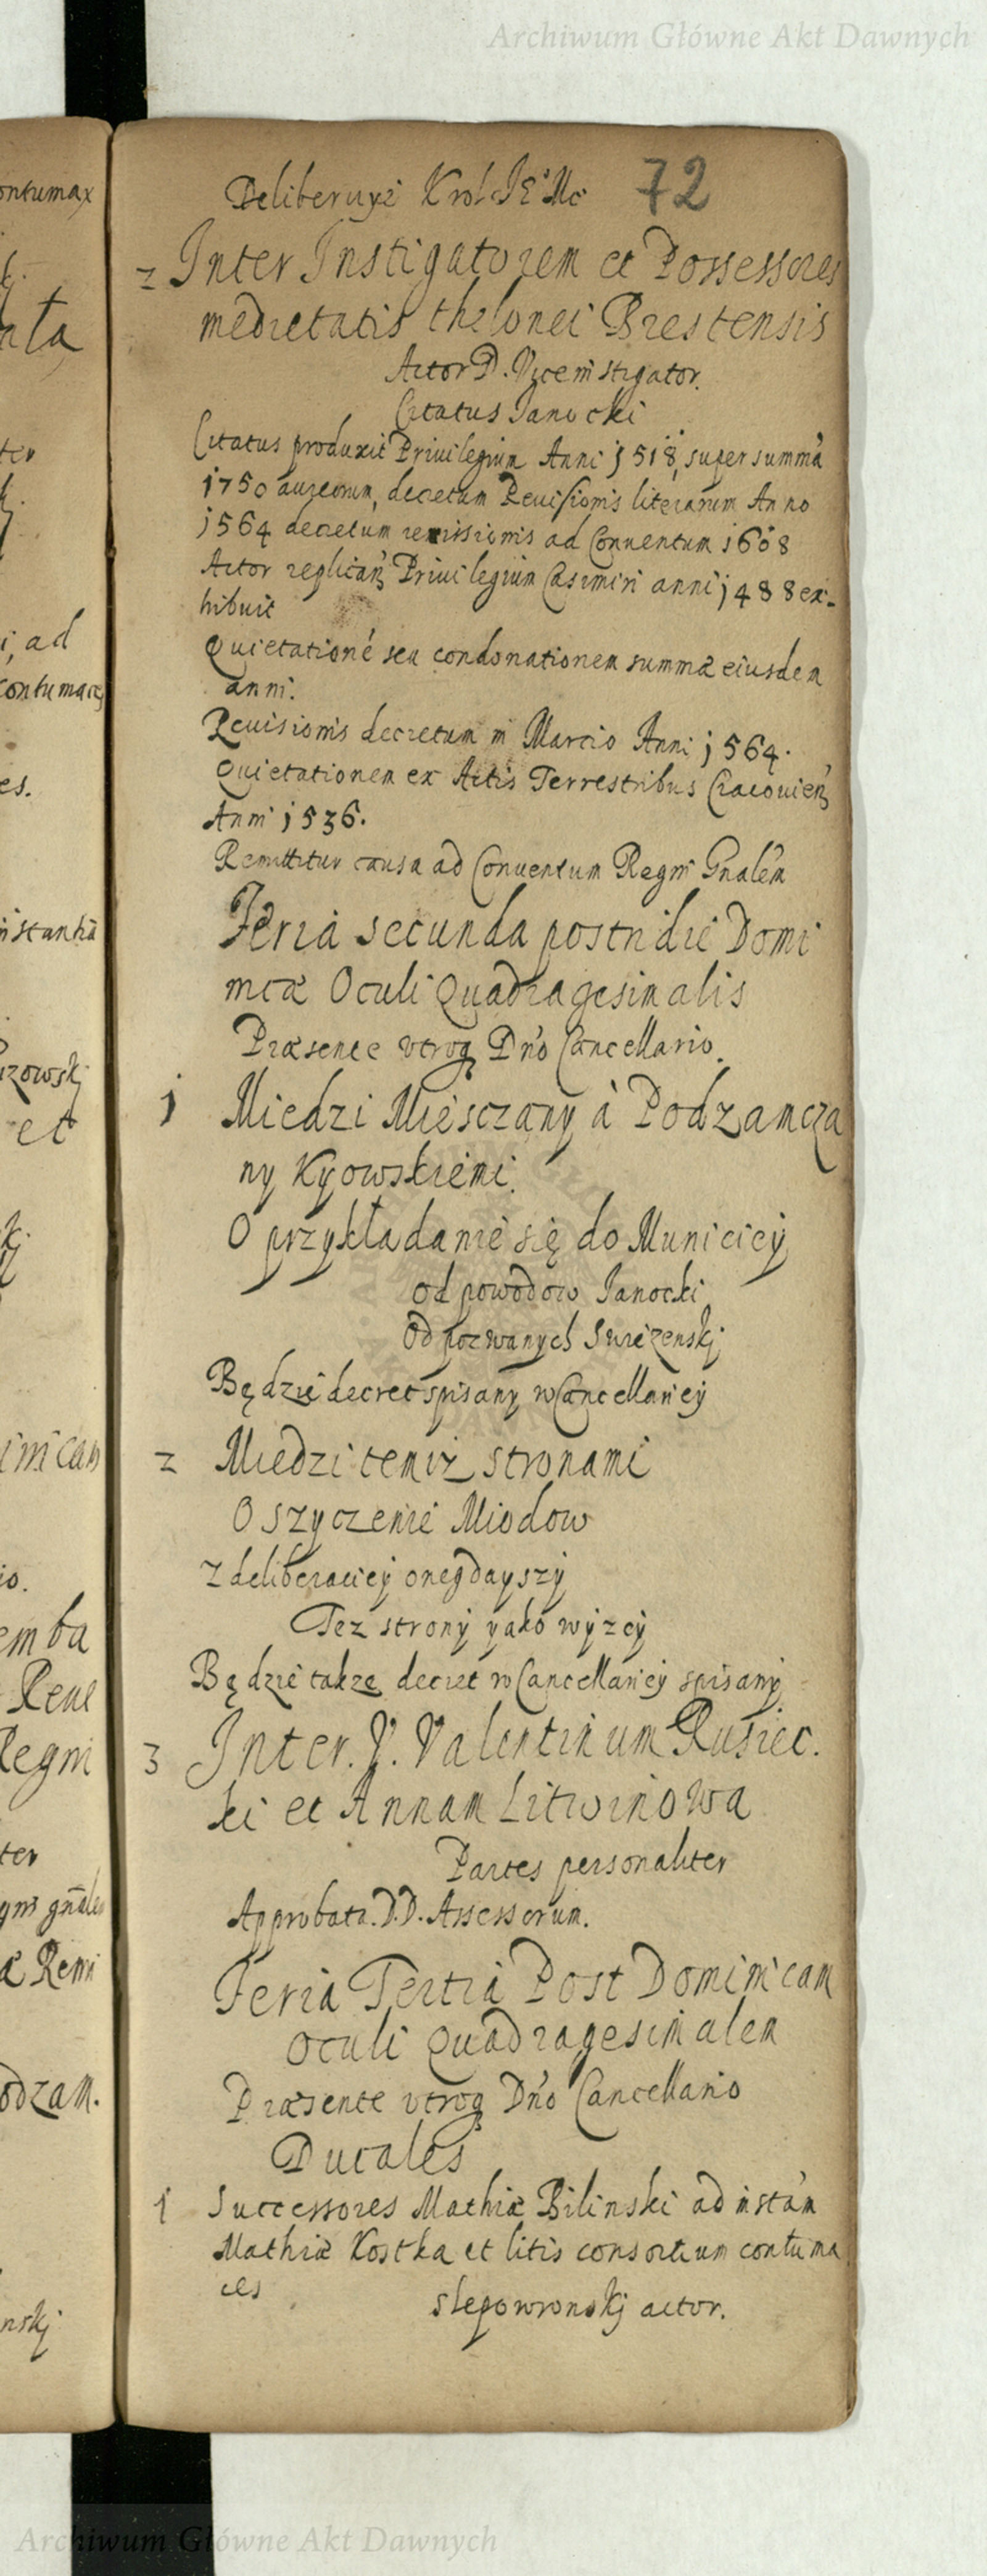 Archiwum Główne Akt Dawnych
72
Deliberuye Krol JE Mc
2 Inter Instigatorem et Possessores
medietatis thelonei Brestensis
Actor D. Viceinstigator.
Citatus Janocki
Citatus produxit Privilegium Anni 1518, super summa
1750 aureorum, decretum Revisionis literarum Anno
1564 decretum remissionis ad Conventum 1608
Actor replican Privilegium Casimiri anni 1488 ex-
hibuit
Quietatione seu condonationem summæ eiusdem
anni.
Revisionis decretum in Martio Anni 1564.
Quietationem ex Actis Terrestribus Cracovien
Anni 1536.
Remittitur causa ad Conventum Regni Gnalem
Feria secunda postridie Domi
nicæ Oculi Quadragesimalis
Præsente utroq Dno Cancellario.
1 Miedzi Miesczany à Podzamcza
ny Kyowskiemi.
O przykładanie się do Municiey
od powodow Janocki
Od pozwanych Swiezenskj
Będzie decret spisany w Cancellariey
2 Miedzi temiz stronami
O szyczenie Miodow
Z deliberaciey onegdayszy
Tez strony yako wyzey
Będzie takze decret w Cancellariey spisany
3 Inter. V. Valentinum Rusiec.
ki et Annam Litwinowa
Partes personaliter
Approbata. D.D. Assessorum.
Feria Tertia Post Dominicam
Oculi Quadragesimalem
Præsente utroq Dno Cancellario
Ducales
1 Successores Mathiæ Bilinski ad instan
Mathiæ Kostka et litis consortium contuma
ces
Slepowronskj actor.
Archiwum Główne Akt Dawnych